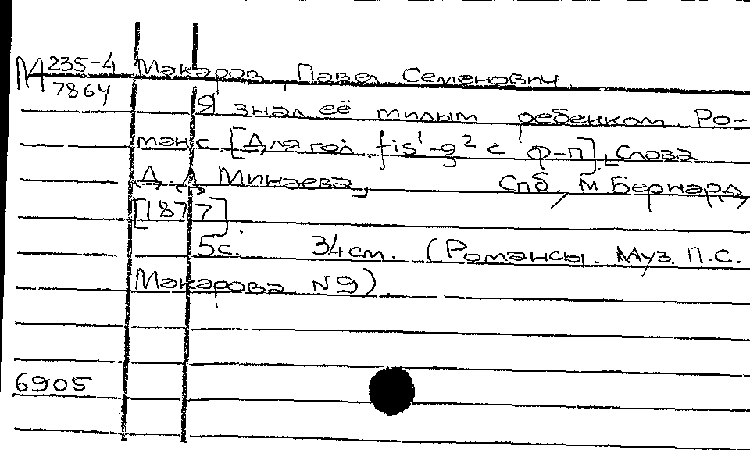 М 235-4 Макаров, Павел Семенович.
7864
Я знал её милым ребенком. Ро-
манс [Для гол. fis¹-g² с ф-п]. Слова
Д. Д. Минаева, Спб, М. Бернард,
[1877].
5с. 34см. (Романсы. Муз. П.С.
Макарова №9)
6905